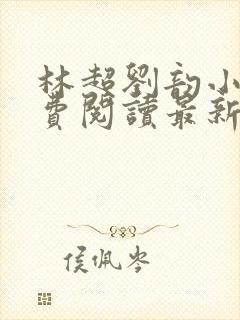 林超劉韵小
費閱讀最新
侯佩岑